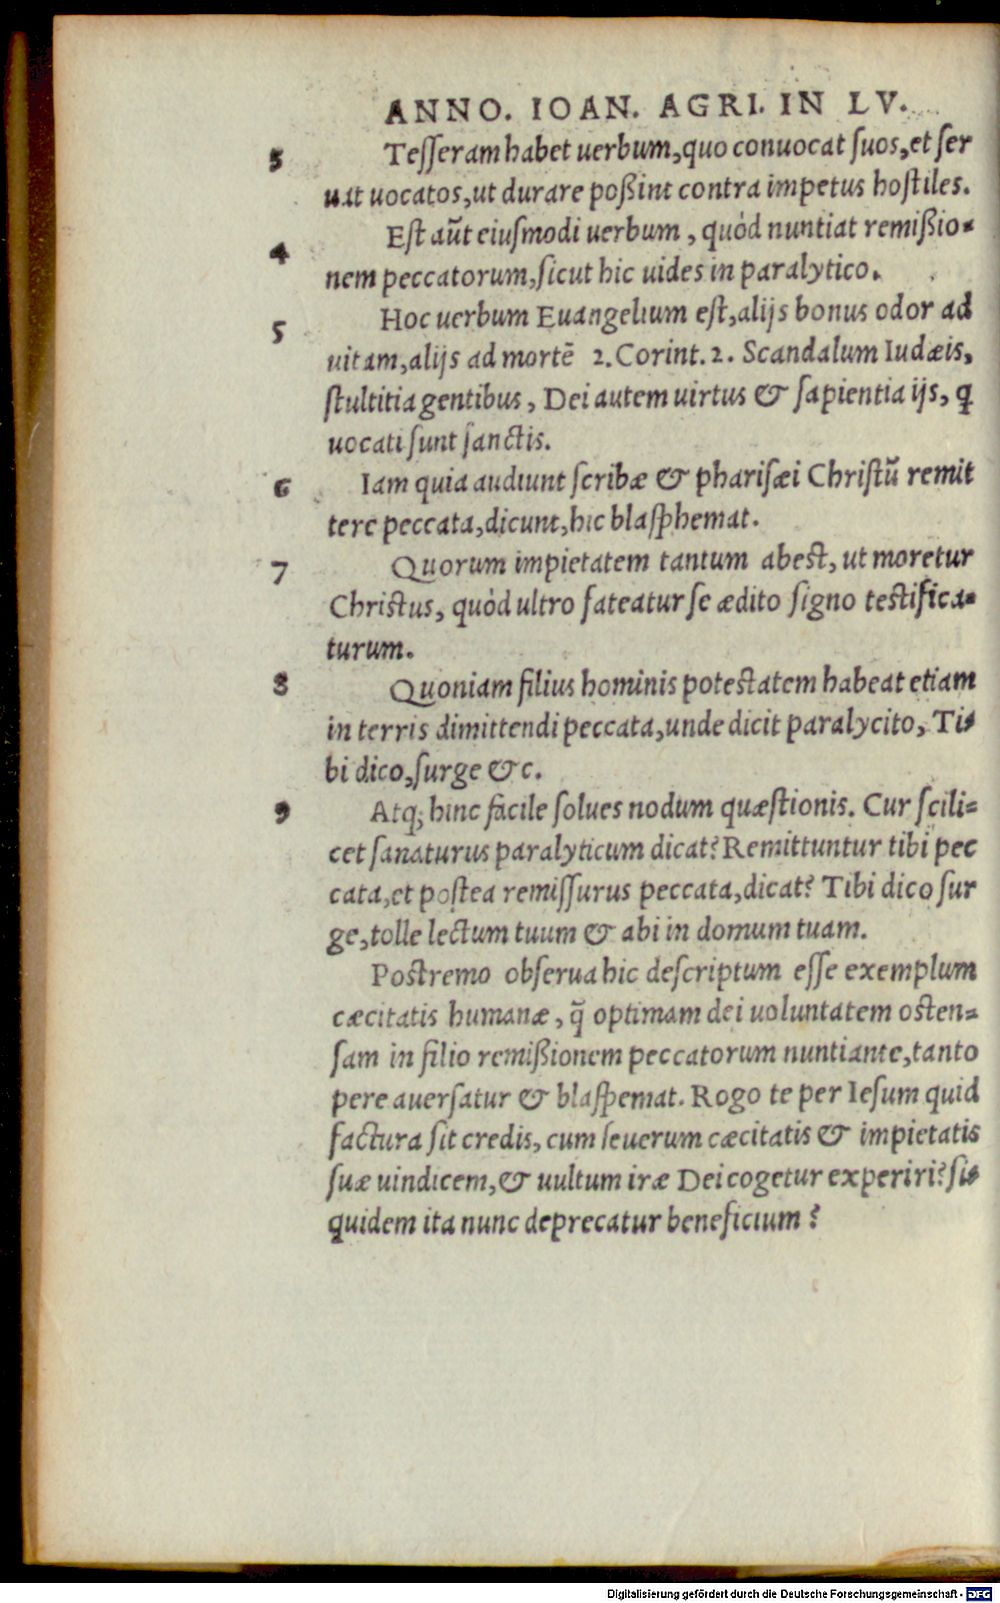 ANNO. IOAN. AGRI. IN LV.
3 Tesseram habet uerbum, quo conuocat suos, et ser
uat uocatos, ut durare poßint contra impetus hostiles.
4 Est aūt eiusmodi uerbum, quòd nuntiat remißio-
nem peccatorum, sicut hic uides in paralytico.
5 Hoc uerbum Euangelium est, alijs bonus odor ad
uitam, alijs ad mortē 2. Corint. 2. Scandalum Iudæis,
stultitia gentibus, Dei autem uirtus & sapientia ijs, ꝗ
uocati sunt sanctis.
6 Iam quia audiunt scribæ & pharisæi Christū remit
tere peccata, dicunt, hic blasphemat.
7 Quorum impietatem tantum abest, ut moretur
Christus, quòd ultro fateatur se ædito signo testifica-
turum.
8 Quoniam filius hominis potestatem habeat etiam
in terris dimittendi peccata, unde dicit paralycito, Ti-
bi dico, surge &c.
9 Atq; hinc facile solues nodum quæstionis. Cur scili-
cet sanaturus paralyticum dicat? Remittuntur tibi pec
cata, et postea remissurus peccata, dicat? Tibi dico sur
ge, tolle lectum tuum & abi in domum tuam.
Postremo obserua hic descriptum esse exemplum
cæcitatis humanæ, q̄ optimam dei uoluntatem osten-
sam in filio remißionem peccatorum nuntiante, tanto
pere auersatur & blaspemat. Rogo te per Iesum quid
factura sit credis, cum seuerum cæcitatis & impietatis
suæ uindicem, & uultum iræ Dei cogetur experiri? si-
quidem ita nunc deprecatur beneficium?
Digitalisierung gefördert durch die Deutsche Forschungsgemeinschaft - DFG